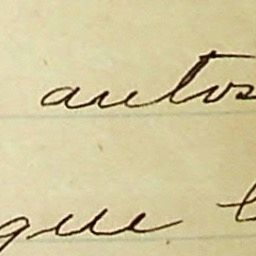 autos
que